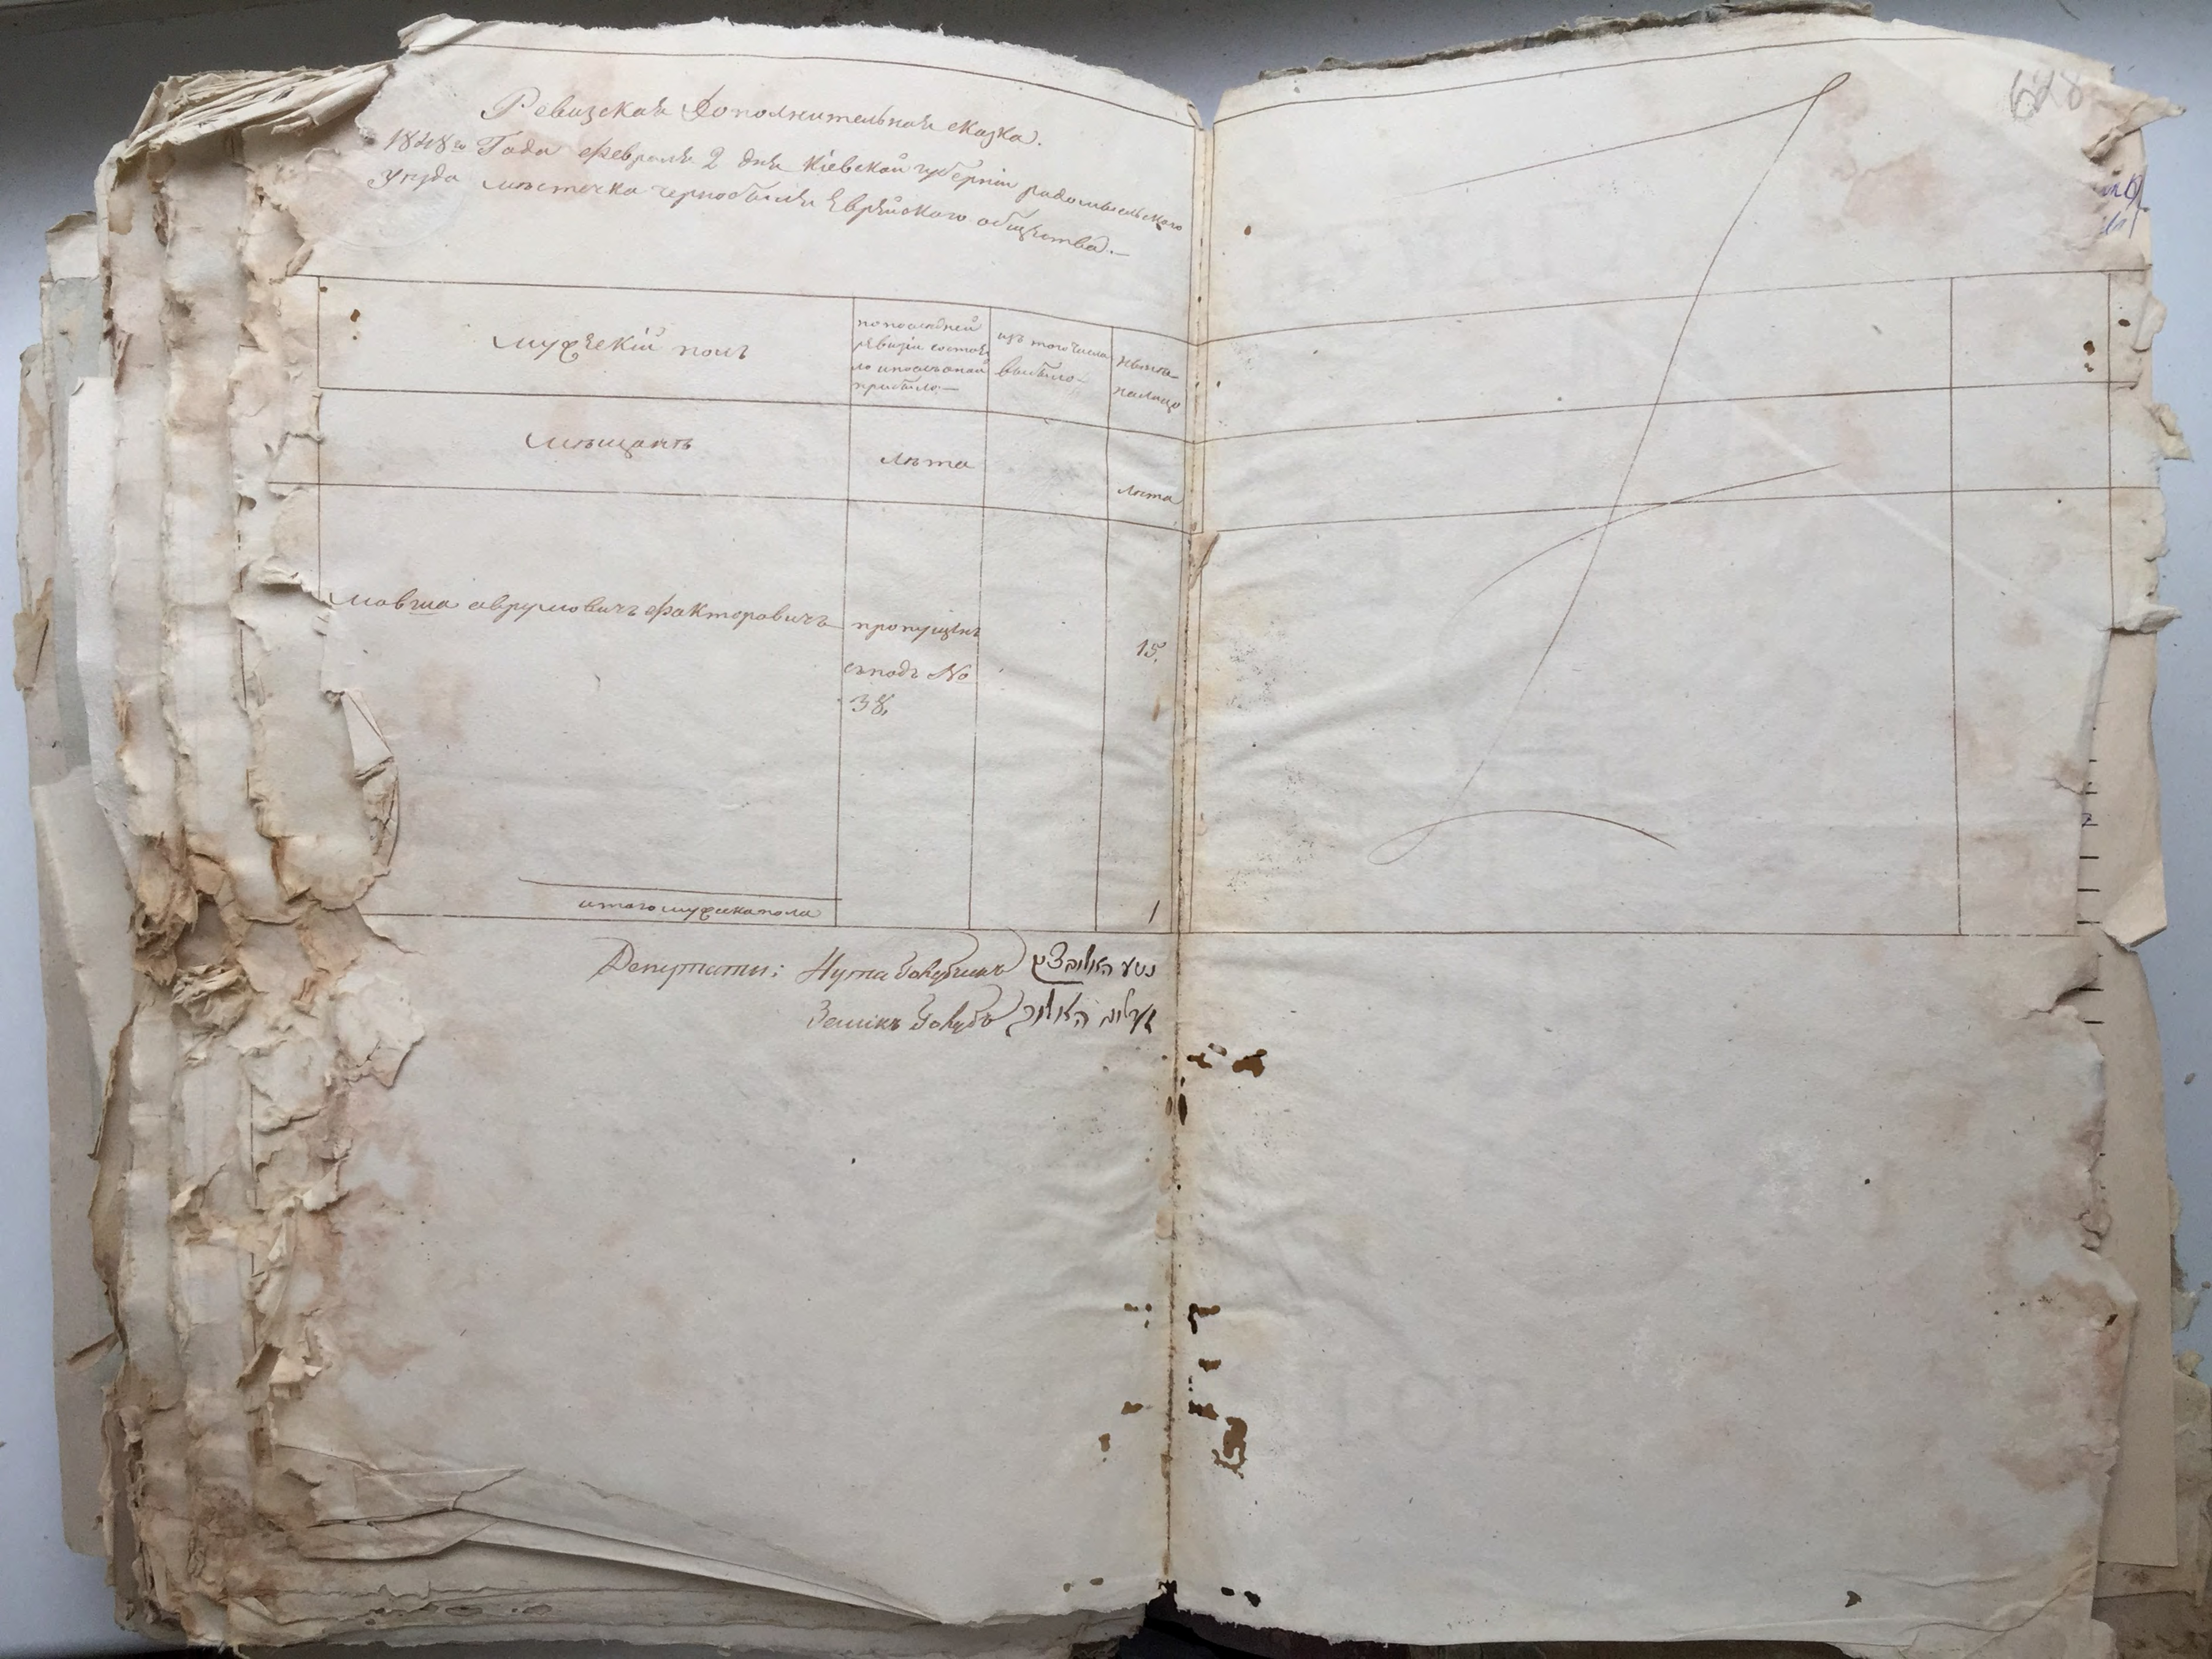 Ревизская дополнительная сказка.
1848го Года февраля 2 дня Кіевской губерніи радомысльского
уезда местечка чернобыля Еврейского общества.—
628
мужескій полъ
по последней
ревизіи состоя
ло и после оной
прибыло.—
изъ того числа
выбыло.—
ныне
налицо
мещанъ
лета
лета
мовша аврумовичъ факторовичъ
пропущенъ
съ подъ №
38,
15,
итого мужеска пола
1
Депутаты: Нута Голубчикъ
Зелик Голубъ